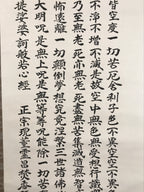 皆空度一切苦厄舍利子色不異空空不異
不淨不增不減是故空中無色無受想行識
乃至無老死亦無老死盡無苦集滅道無智
怖遠離一切顛倒夢想究竟涅槃三世諸佛
大明咒是無上咒是無等等咒能除一切苦
提娑婆訶般若心經 正宗 焚香